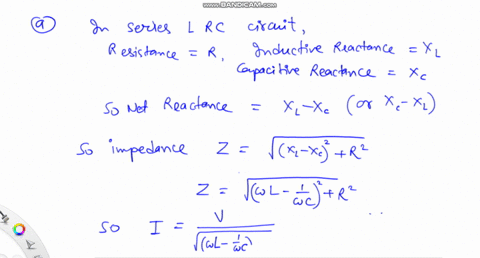 WWW.BANDICAM.COM
(a) In series LRC circuit,
Resistance = R, Inductive Reactance = X_L
Capacitive Reactance = X_c
So Net Reactance = X_L - X_c (or X_c - X_L)
So impedance Z = √((X_L - X_c)² + R²)
Z = √((ωL - 1/ωC)² + R²)
So I = V / √((ωL - 1/ωC)